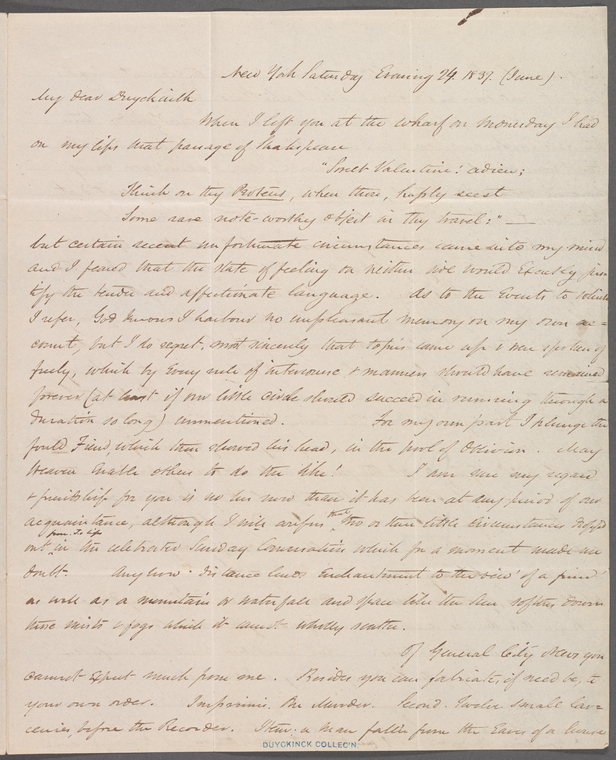 New York Saturday Evening 24. 1837. (June).
My dear Duyckinck
When I left you at the wharf on Monday I had
on my lips that passage of Shakspeare
"Sweet Valentine! adieu;
Think on thy Proteus, when thou, haply seest
Some rare note-worthy object in thy travel:" —
but certain recent unfortunate circumstances came into my mind
and I feared that the state of feeling on neither side would exactly jus-
tify the tender and affectionate language. As to the events to which
I refer, God knows I harbour no unpleasant memory on my own ac-
count, but I do regret, most sincerely that topics came up & were spoken of
freely, which by every rule of intercourse & manners should have remained
forever (at least if our little circle should succeed in running through a
duration so long) unmentioned. For my own part I plunge the
foul Fiend, which then showed his head, in the pool of Oblivion. May
Heaven enable others to do the like! I am sure my regard
& friendship for you is no less now than it has been at any period of our
acquaintance, although I will confess that two or three little circumstances
out in the celebrated Sunday Conversation which for a moment made me
from to life
doubt. Anyhow 'distance lends Enchantment to the view' of a friend
as well as a mountain or waterfall and space like the sun, softens down
those mists & fogs which it cannot wholly scatter.
Of General City News you
cannot expect much from me. Besides you can fabricate, if need be, to
your own order. Imprimis. One Murder. Second. Twelve small Lar-
cenies before the Recorder. Item: a man fallen from the Eaves of a house
DUYCKINCK COLLEC'N.